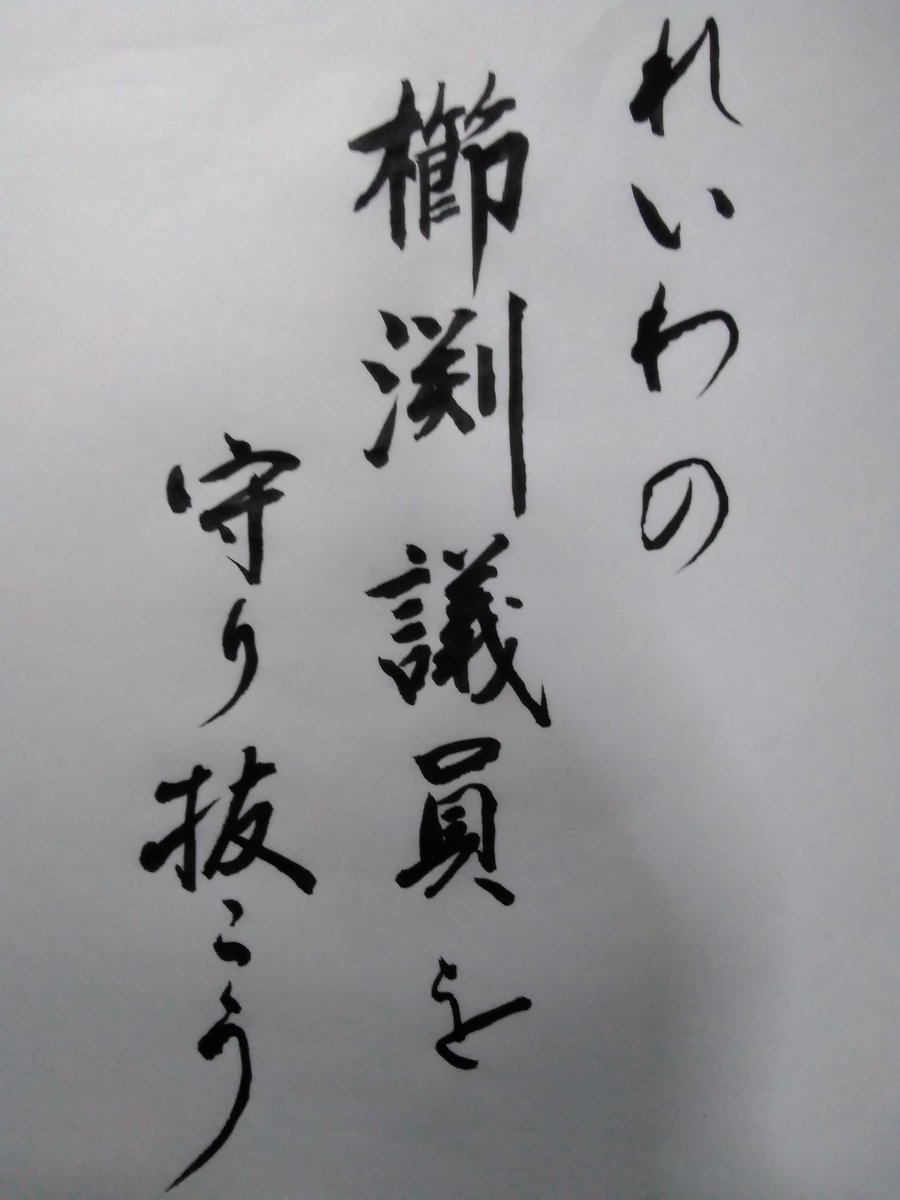 れいわの
櫛渕議員を
守り抜こう